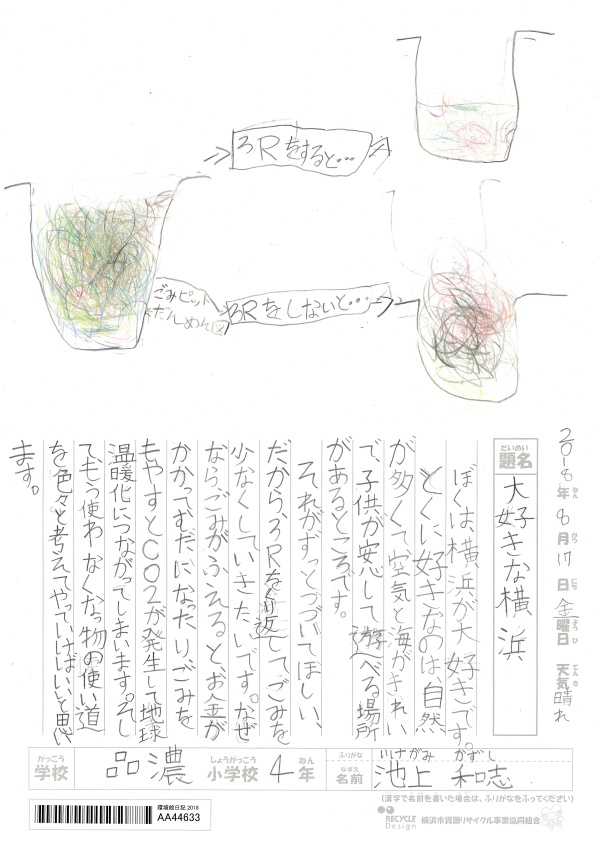 3Rをすると…
ごみピット
だんめん図
3Rをしないと…
2018年8月17日金曜日 天気晴れ
ねん
がつ
にち
ようび
てんき
だいめい
題名
大好きな横浜
ぼくは、横浜が大好きです。
とくに好きなのは、自然
が多くて空気と海がきれい
で、子供が安心して遊べる場所
があるところです。
それがずっとつづいてほしい、
だから、3Rをくり返してごみを
少なくしていきたいです。なぜ
なら、ごみがふえると、お金が
かかってむだになったりごみを
もやすとCO2が発生して地球
温暖化につながってしまいます。そし
てもう使わなくなった物の使い道
を色々と考えてやっていけばいいと思い
ます。
がっこう
学校
品濃
しょうがっこう
小学校
4
ねん
年
ふりがな
いけがみ かずし
なまえ
名前
池上 和志
(漢字で名前を書いた場合は、ふりがなをふってください)
環境絵日記 2018
AA44633
RECYCLE
Design
横浜市資源リサイクル事業協同組合